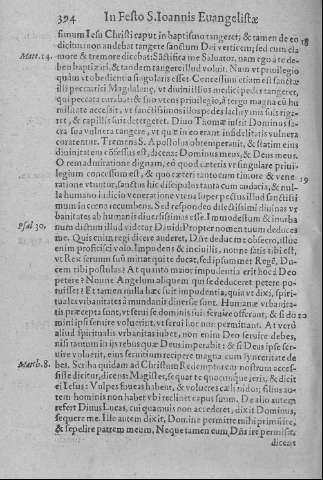 394 In Festo S. Ioannis Euangelistæ
simum Iesu Christi caput in baptismo tangeret; & tamen de eo 18
dicitur: non audebat tangere sanctum Dei verticem; sed cum cla
Matt. 14. more & tremore dicebat: Sāctifica me Saluator. nam ego à te de-
beo baptizari, & tandem tangere illud voluit. Nam vt priuilegio
quàm vt obedientia singularis esset. Concessum etiam est sanctæ
illi peccatrici Magdalenę, vt diuini illius medici pedes tangeret,
qui peccata curabat; & suo vtens priuilegio, à tergo magna cū hu
militate accessit, vt sanctissimos illius pedes lachrymis suis riga-
ret, & capillis suis detergeret. Diuo Thomæ iussit Dominus sa
cra sua vulnera tangere, vt quæ in eo erant infidelitatis vulnera
curarentur. Tremens S. Apostolus obtemperauit, & statim eius
diuinitatem confessus est, dicens: Dominus meus, & Deus meus.
O rem admiratione dignam, eò quod cæteris vt singulare priui-
legium concessum est, & quo cæteri tanto cum timore & vene 19
ratione vtuntur, sanctus hic discipulus tanta cum audacia, & nul-
la humano iudicio veneratione vtens super pectus illud sanctissi
mum in cœna recumbens. Sed respondeo doctissimè diuinas vr
banitates ab humanis diuersissimas esse. Immodestum & inurba
Psal. 30. num dictum illud videtur Dauid: Propter nomen tuum deduces
me. Quis enim regi dicere auderet, Dñe deduc me obsecro, illuc
enim proficisci volo. Impudens & inciuilis, nonne satis tibi est,
vt Rex seruum suū mittat qui te ducat, sed ipsummet Regē, Du-
cem tibi postulas? At quanto maior impudentia erit hoc à Deo
petere? Nonne Angelum aliquem qui se deduceret petere po-
tuisset? Et tamen nulla hæc fuit impudentia, quia vt dixi, spiri-
tuales vrbanitates à mundanis diuersæ sunt. Humanæ vrbanita-
tis præcepta sunt, vt serui se dominis suis seruire offerant, & si do 20
mini ipsi seruire voluerint, vt serui hoc non permittant. At verò
aliud spiritualis vrbanitas iubet, non enim Deo seruire debes,
nisi tantum in ijs rebus quæ Deus imperabit: & si Deus ipse ser-
uire voluerit, eius seruitium recipere magna cum synceritate de
Matth. 8. bet. Scriba quidam ad Christum Redemptorem nostrum acces-
sisse dicitur, dicens Magister, sequar te quocunque ieris, & dicit
ei Iesus: Vulpes foueas habent, & volucres cæli nidos; filius au-
tem hominis non habet vbi reclinet caput suum. De alio autem
refert Diuus Lucas, cui quamuis non accederet, dixit Dominus,
sequere me. Ille autem dixit, Domine permitte mihi primùm ire,
& sepelire patrem meum, Neque tamen eum Dñs ire permisit,
dicens